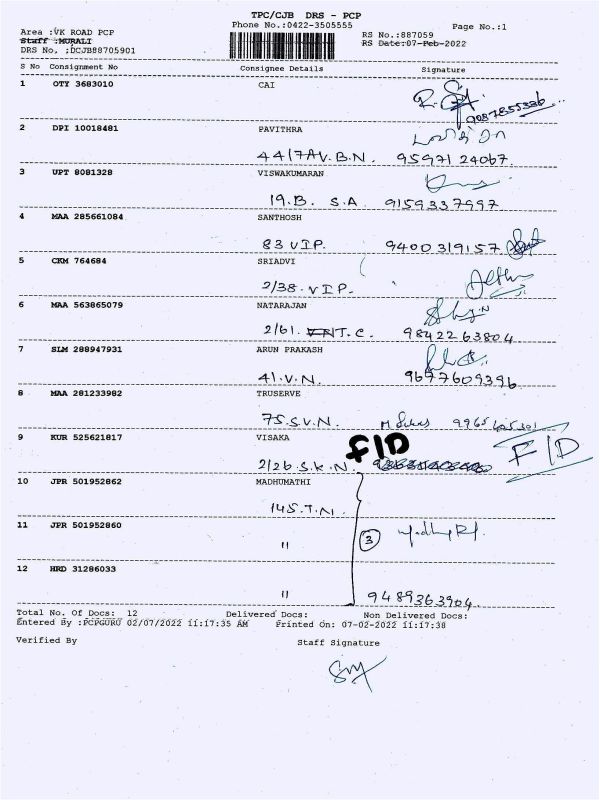 TPC/CJB  DRS - PCP
Phone No.:0422-3505555
Page No.:1
Area :VK ROAD PCP
RS No.:887059
Staff :MURALI
RS Date:07-Feb-2022
DRS No. :DCJB88705901
S No  Consignment No  Consignee Details  Signature
1  OTY 3683010  CAI
9087855336
2  DPI 10018481  PAVITHRA
44/7A V.B.N.  95971 24067.
3  UPT 8081328  VISWAKUMARAN
19.B. S.A.  9159337997
4  MAA 285661084  SANTHOSH
83 VIP.  9400319157.
5  CKM 764684  SRIADVI
2/38. VIP.
6  MAA 563865079  NATARAJAN
2/61. T.C.  9842263804
7  SLM 288947931  ARUN PRAKASH
41.V.N.  9677609396
8  MAA 281233982  TRUSERVE
75.S.V.N.
9  KUR 525621817  VISAKA
F/D  F/D
2/26.S.K.N.
10  JPR 501952862  MADHUMATHI
145.T.N.
11  JPR 501952860
"  3
12  HRD 31286033
"  9489363904
Total No. Of Docs:  12  Delivered Docs:  Non Delivered Docs:
Entered By :PCPGURU 02/07/2022 11:17:35 AM  Printed On: 07-02-2022 11:17:38
Verified By  Staff Signature